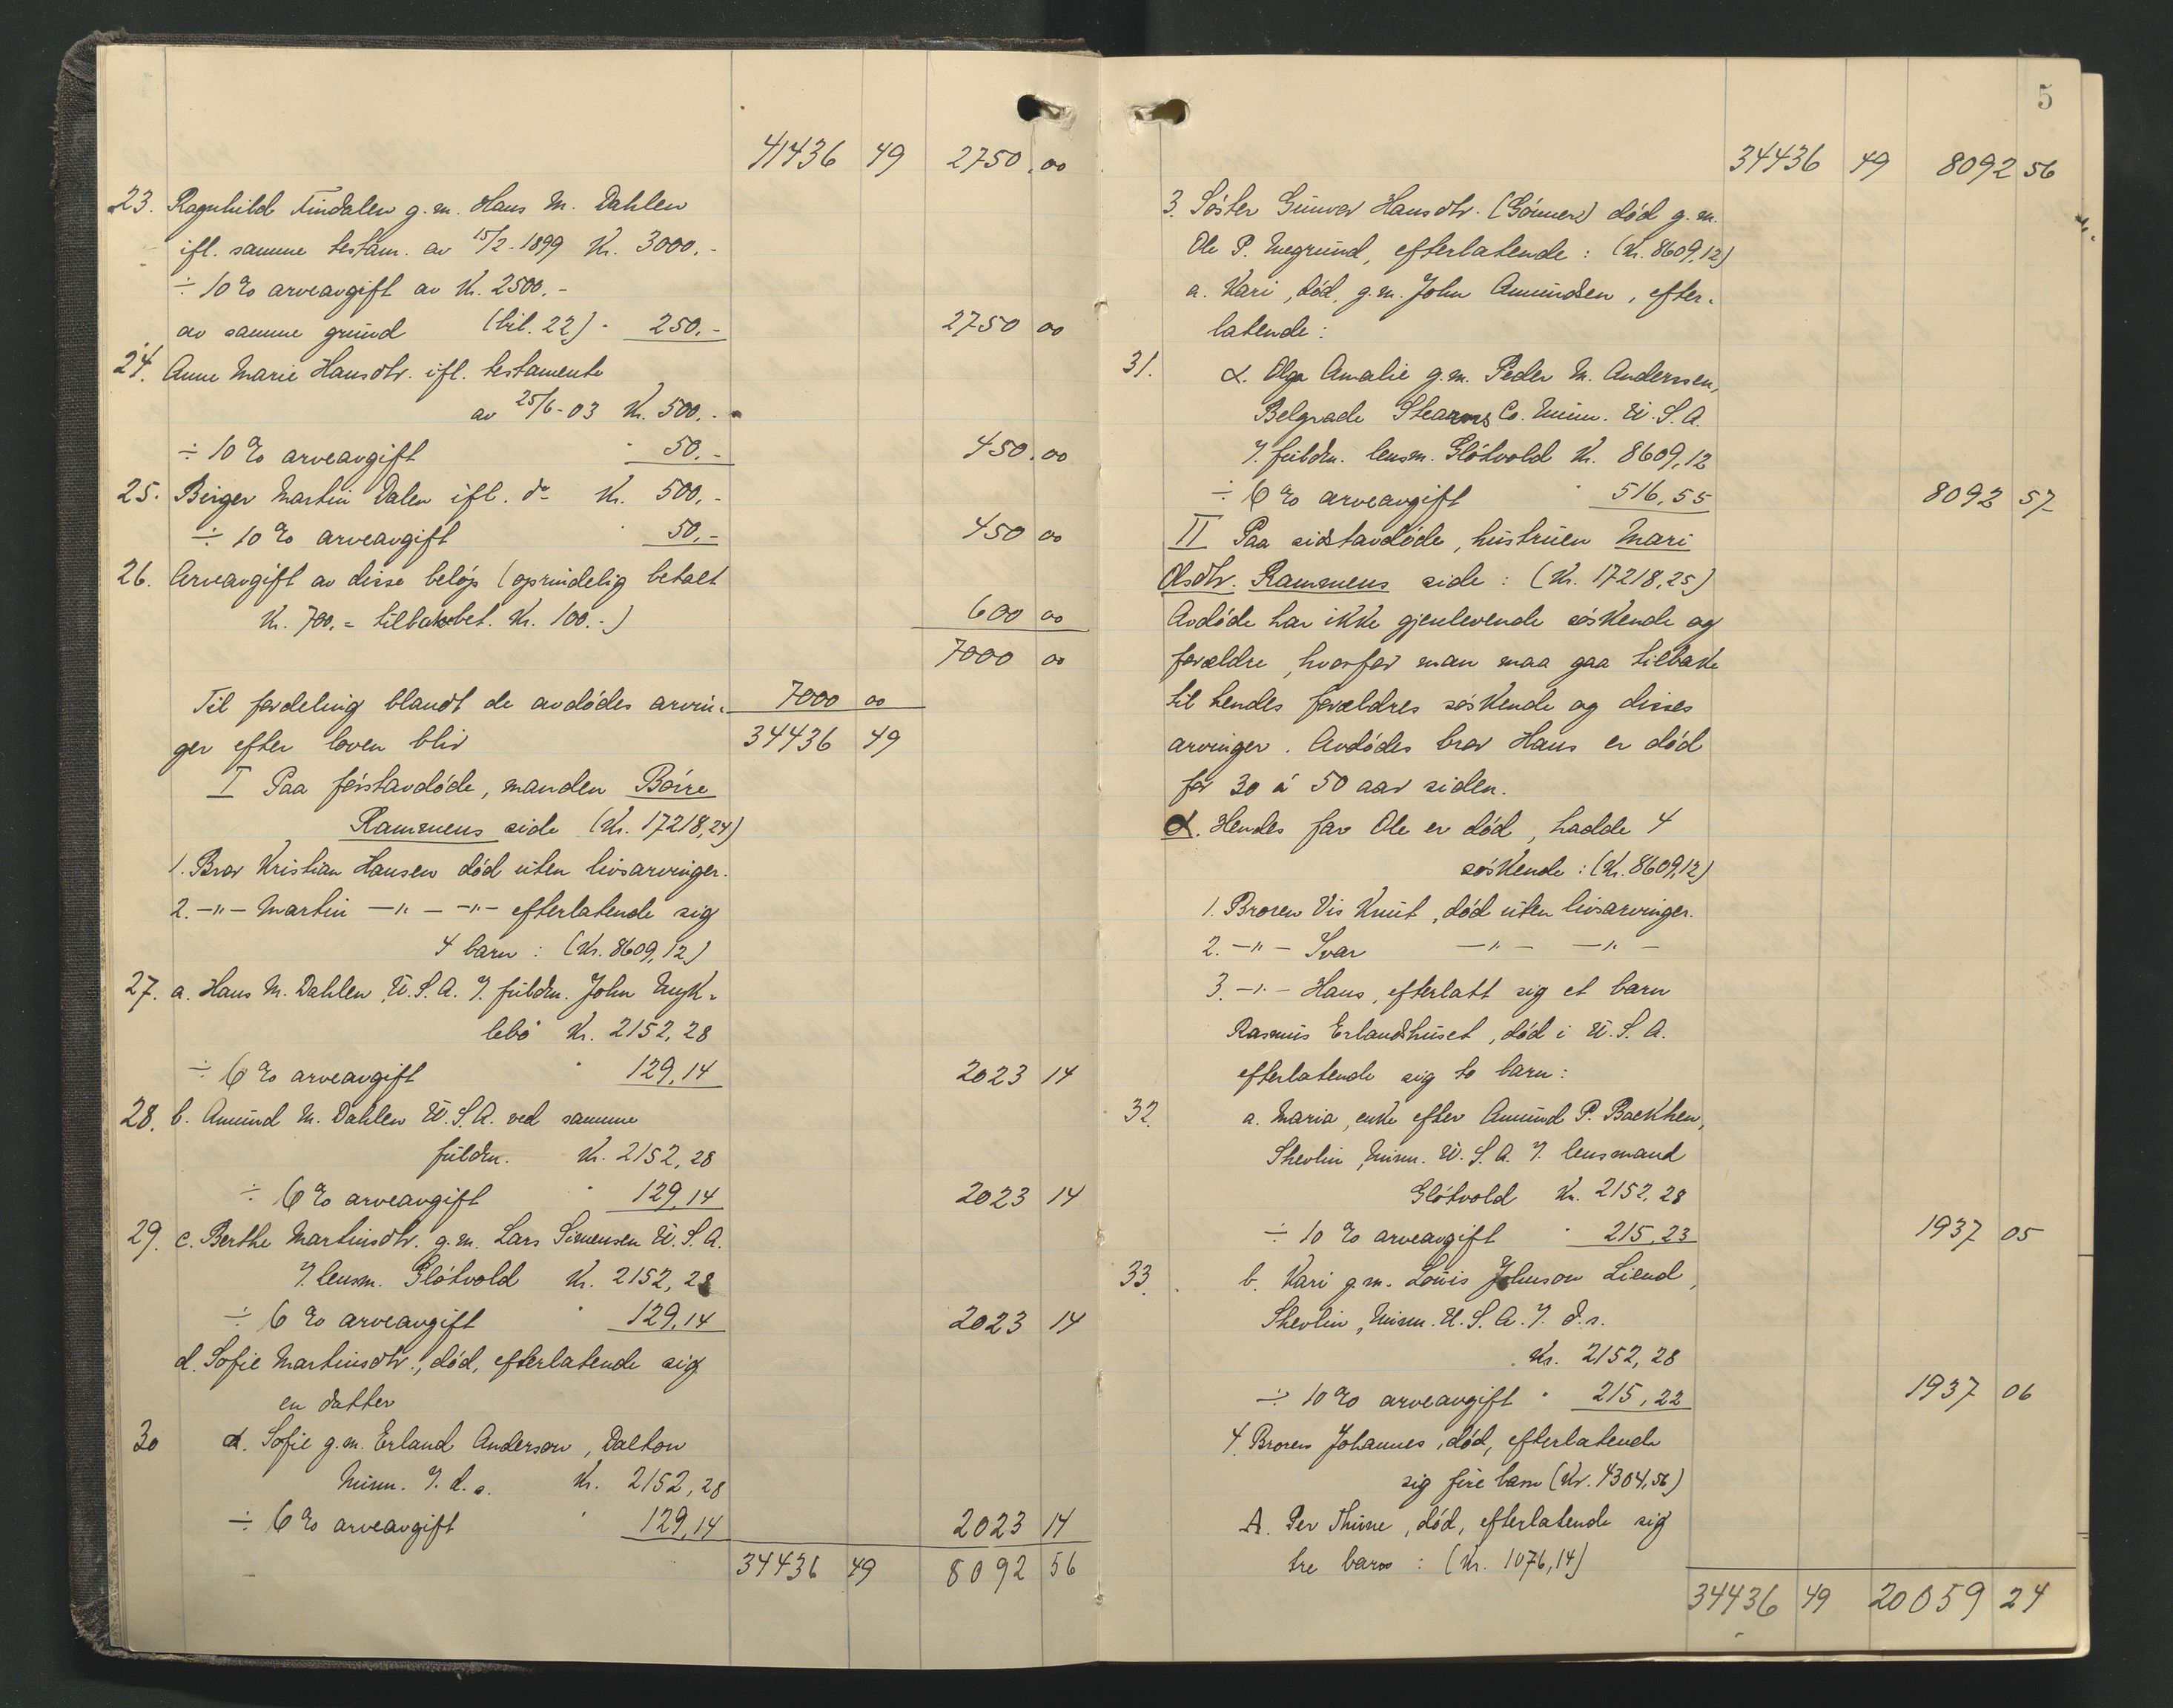 41436 49 2750,00
23. Ragnhild Findalen g.m. Hans M. Dahlen
ifl. samme testam. av 15/2-1899 Kr. 3000.-
÷ 10 % arveavgift av Kr. 2500.-
av samme grund (bil. 22) " 250.- 2750 00
24. Anne Marie Hansdtr. ifl. testamente
av 25/6-03 Kr. 500.-
÷ 10 % arveavgift " 50.- 450.00
25. Birger Martin Dalen ifl. do Kr. 500.-
÷ 10 % arveavgift " 50.- 450 00
26. Arveavgift av disse beløp (oprindelig betalt
Kr. 700.- tilbakebet. Kr. 100.-) 600 00
7000 00
Til fordeling blandt de avdødes arvin- 7000 00
ger efter loven blir 34436 49
I Paa førstavdøde, manden Børre
Rammens side (Kr. 17218,24)
1. Bror Kristian Hansen død uten livsarvinger.
2. -"- Martin -"- -"- efterlatende sig
4 barn : (Kr. 8609,12)
27. a. Hans M. Dahlen, U.S.A. V. fuldm. John Myk-
lebø Kr. 2152,28
÷ 6 % arveavgift " 129,14 2023 14
28. b. Amund M. Dahlen U.S.A. ved samme
fuldm. Kr. 2152,28
÷ 6 % arveavgift " 129,14 2023 14
29. c. Berthe Martinsdtr. g.m. Lars Simensen U.S.A.
V. lensm. Gløtvold Kr. 2152,28
÷ 6 % arveavgift " 129,14 2023 14
d. Sofie Martinsdtr., død, efterlatende sig
en datter
30 α. Sofie g.m. Erland Anderson, Dalton
Minn. V. d.s. Kr. 2152,28
÷ 6 % arveavgift " 129,14 2023 14
34436 49 8092 56
5
34436 49 8092 56
3. Søster Gunvor Hansdtr. (Gönner) død g.m.
Ole P. Megrund, efterlatende : (Kr. 8609,12)
a. Kari, død, g.m. John Amundsen, efter-
latende :
31. α. Olga Amalie g.m. Peder M. Anderssen,
Belgrade Stearns Co. Minn. U.S.A.
V. fuldm. lensm. Gløtvold Kr. 8609,12
÷ 6 % arveavgift " 516,55 8092 57
II Paa sidstavdøde, hustruen Mari
Olsdtr. Rammens side : (Kr. 17218,25)
Avdøde har ikke gjenlevende søskende og
forældre, hvorfor man maa gaa tilbake
til hendes forældres søskende og disses
arvinger. Avdødes bror Hans er død
for 30 à 50 aar siden.
α. Hendes far Ole er død, hadde 4
søskende : (Kr. 8609,12)
1. Broren Vis Knut, død uten livsarvinger.
2. -"- Ivar -"- -"-
3. -"- Hans, efterlatt sig et barn
Rasmus Erlandshuset, død i U.S.A.
efterlatende sig to barn :
32. a. Maria, enke efter Amund P. Baekken,
Shevlin, Minn. U.S.A. V. lensmand
Gløtvold Kr. 2152,28
÷ 10 % arveavgift " 215,23 1937 05
33. b. Kari g.m. Louis Johnson Liend,
Shevlin, Minn. U.S.A. V. d.s.
Kr. 2152,28
÷ 10 % arveavgift " 215,22 1937 06
4. Broren Johannes, død, efterlatende
sig fire barn (Kr. 4304,56)
A. Per Thune, død, efterlatende sig
tre barn : (Kr. 1076,14)
34436 49 20059 24